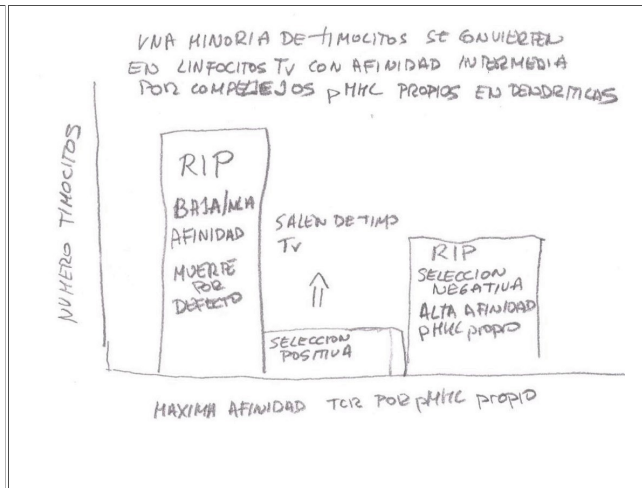 UNA MINORIA DE TIMOCITOS SE CONVIERTEN
EN LINFOCITOS TV CON AFINIDAD INTERMEDIA
POR COMPLEJOS pMHC PROPIOS EN DENDRITICAS
NUMERO TIMOCITOS
RIP
BAJA/NULA
AFINIDAD
MUERTE
POR
DEFECTO
SALEN DE TIMO
TV
SELECCION
POSITIVA
RIP
SELECCION
NEGATIVA
ALTA AFINIDAD
pMHC propio
MAXIMA AFINIDAD TCR POR pMHC propio